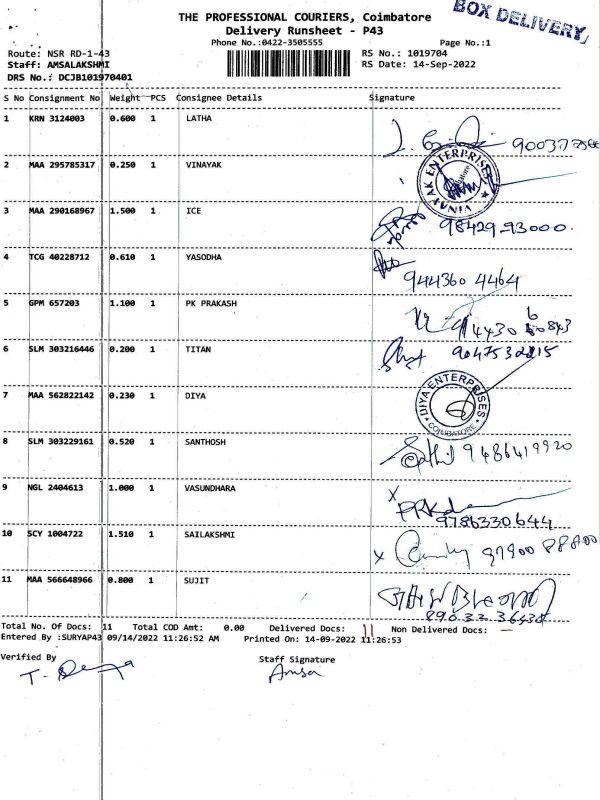 BOX DELIVERY
THE PROFESSIONAL COURIERS, Coimbatore
Delivery Runsheet - P43
Phone No.:0422-3505555 Page No.:1
Route: NSR RD-1-43 RS No.: 1019704
Staff: AMSALAKSHMI RS Date: 14-Sep-2022
DRS No.: DCJB101970401
S No Consignment No Weight PCS Consignee Details Signature
1 KRN 3124003 0.600 1 LATHA
2 MAA 295785317 0.250 1 VINAYAK
VINAYAK ENTERPRISES
3 MAA 290168967 1.500 1 ICE
98429-93000
4 TCG 40228712 0.610 1 YASODHA
944360 4464
5 GPM 657203 1.100 1 PK PRAKASH
6 SLM 303216446 0.200 1 TITAN
7 MAA 562822142 0.230 1 DIYA
DIYA ENTERPRISES
COIMBATORE
8 SLM 303229161 0.520 1 SANTHOSH
9486419920
9 NGL 2404613 1.000 1 VASUNDHARA
9786330644
10 SCY 1004722 1.510 1 SAILAKSHMI
97900 88800
11 MAA 566648966 0.800 1 SUJIT
Total No. Of Docs: 11 Total COD Amt: 0.00 Delivered Docs: 11 Non Delivered Docs: —
Entered By :SURYAP43 09/14/2022 11:26:52 AM Printed On: 14-09-2022 11:26:53
Verified By Staff Signature
Amsa